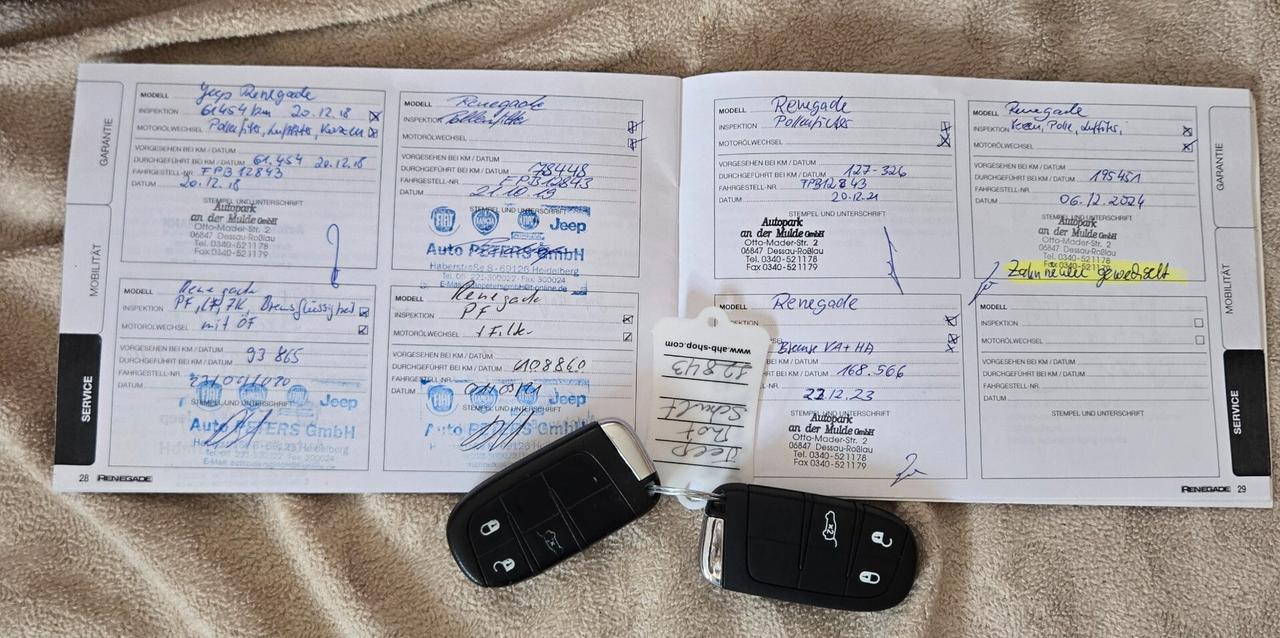 GARANTIE
MOBILITÄT
SERVICE
MODELL Jeep Renegade
INSPEKTION 61454 km 20.12.18
MOTORÖLWECHSEL Pollenfilter, Luftfilter, Kerzen
VORGESEHEN BEI KM / DATUM
DURCHGEFÜHRT BEI KM / DATUM 61.454 20.12.18
FAHRGESTELL-NR. FPB12843
DATUM 20.12.18
STEMPEL UND UNTERSCHRIFT
Autopark
an der Mulde GmbH
Otto-Mader-Str. 2
06847 Dessau-Roßlau
Tel. 0340-521178
Fax 0340-521179
MODELL Renegade
INSPEKTION Pollenfilter
MOTORÖLWECHSEL
VORGESEHEN BEI KM / DATUM
DURCHGEFÜHRT BEI KM / DATUM 78448
FAHRGESTELL-NR. FPB12843
DATUM 21.10.19
STEMPEL UND UNTERSCHRIFT
FIAT LANCIA Jeep
Auto PETERS GmbH
Haberstraße 8 - 69126 Heidelberg
MODELL Renegade
INSPEKTION PF, LF, ZK, Bremsflüssigkeit
MOTORÖLWECHSEL mit ÖF
VORGESEHEN BEI KM / DATUM
DURCHGEFÜHRT BEI KM / DATUM 93 865
FAHRGESTELL-NR.
DATUM
STEMPEL UND UNTERSCHRIFT
Jeep
Auto PETERS GmbH
MODELL Renegade
INSPEKTION PF
MOTORÖLWECHSEL + Filter
VORGESEHEN BEI KM / DATUM
DURCHGEFÜHRT BEI KM / DATUM 108860
FAHRGESTELL-NR.
DATUM
STEMPEL UND UNTERSCHRIFT
Jeep
Auto PETERS GmbH
28 RENEGADE
MODELL Renegade
INSPEKTION Pollenfilter
MOTORÖLWECHSEL
VORGESEHEN BEI KM / DATUM
DURCHGEFÜHRT BEI KM / DATUM 127-326
FAHRGESTELL-NR. FPB12843
DATUM 20.12.21
STEMPEL UND UNTERSCHRIFT
Autopark
an der Mulde GmbH
Otto-Mader-Str. 2
06847 Dessau-Roßlau
Tel. 0340-521178
Fax 0340-521179
MODELL Renegade
INSPEKTION Polle, Luftfilter,
MOTORÖLWECHSEL
VORGESEHEN BEI KM / DATUM
DURCHGEFÜHRT BEI KM / DATUM 195451
FAHRGESTELL-NR.
DATUM 06.12.2024
STEMPEL UND UNTERSCHRIFT
Autopark
an der Mulde GmbH
Otto-Mader-Str. 2
06847 Dessau-Roßlau
Tel. 0340-521178
Fax 0340-521179
Zahnriemen gewechselt
Renegade
Bremse VA + HA
BEI KM / DATUM
BEI KM / DATUM 168.566
22.12.23
STEMPEL UND UNTERSCHRIFT
Autopark
an der Mulde GmbH
Otto-Mader-Str. 2
06847 Dessau-Roßlau
Tel. 0340-521178
Fax 0340-521179
MODELL
INSPEKTION
MOTORÖLWECHSEL
VORGESEHEN BEI KM / DATUM
DURCHGEFÜHRT BEI KM / DATUM
FAHRGESTELL-NR.
DATUM
STEMPEL UND UNTERSCHRIFT
GARANTIE
MOBILITÄT
SERVICE
RENEGADE 29
Jeep
Schulz
12843
www.ahb-shop.com
x2